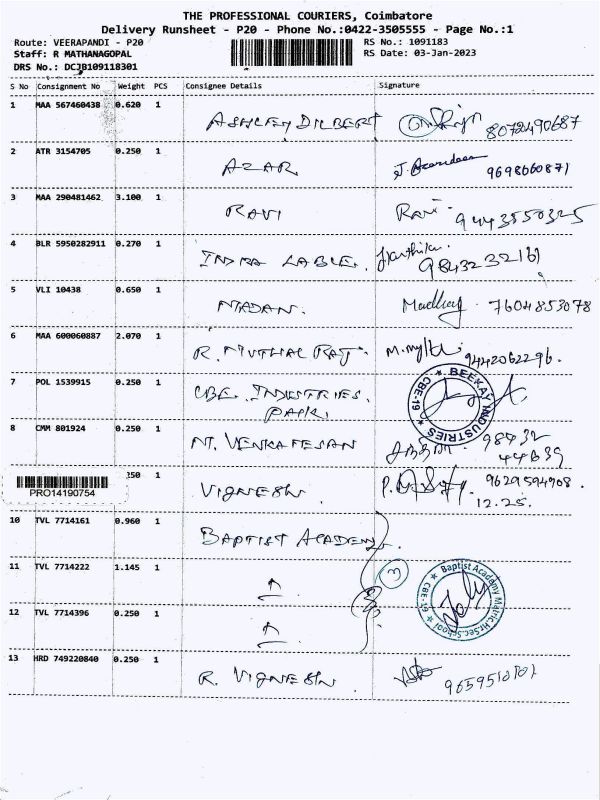 THE PROFESSIONAL COURIERS, Coimbatore
Delivery Runsheet - P20 - Phone No.:0422-3505555 - Page No.:1
Route: VEERAPANDI - P20 RS No.: 1091183
Staff: R MATHANAGOPAL RS Date: 03-Jan-2023
DRS No.: DCJB109118301
S No Consignment No Weight PCS Consignee Details Signature
1 MAA 567460438 0.620 1 ASHLEY DILBERT 8072490687
2 ATR 3154705 0.250 1 AZAR 9698660871
3 MAA 290481462 3.100 1 RAVI Ravi 9443550325
4 BLR 5950282911 0.270 1 INDRA LABLE. Karthika. 9843232161
5 VLI 10438 0.650 1 MADAN. Madhav 7604853078
6 MAA 600060887 2.070 1 R. MUTHAL RAJ. 9442062296.
7 POL 1539915 0.250 1 CBE. INDUSTRIES. BEEKAY INDUSTRIES CBE-19
8 CMM 801924 0.250 1 VENKATESAN 98432
44839
PRO14190754 250 1 VIGNESH 9629594908.
12.25.
10 TVL 7714161 0.960 1 BAPTIST ACADEMY.
11 TVL 7714222 1.145 1 3 Baptist Academy Matric.Hr.Sec.School CBE-19
12 TVL 7714396 0.250 1
13 HRD 749220840 0.250 1 R. VIGNESH 9659510101